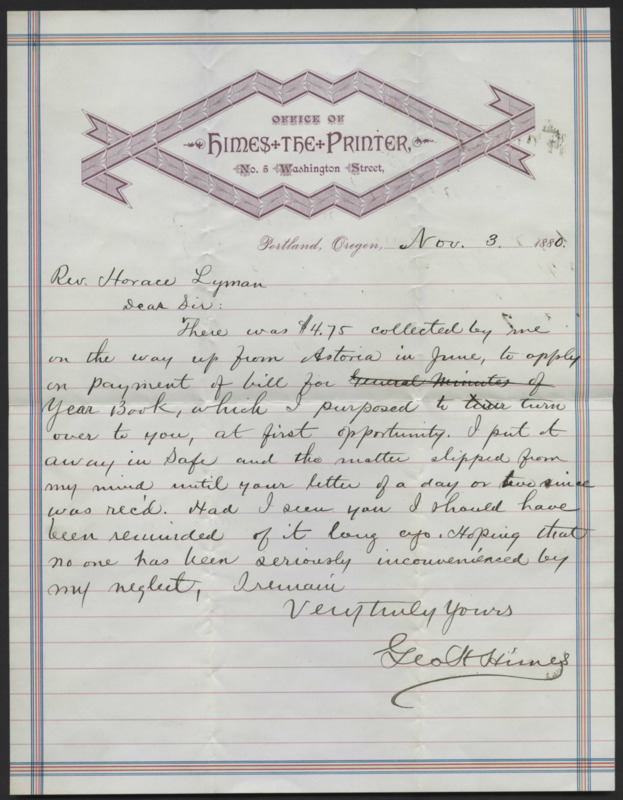 OFFICE OF
HIMES+THE+PRINTER,
No. 5 Washington Street,
Portland, Oregon, Nov. 3. 1880.
Rev. Horace Lyman
Dear Sir:
There was $4.75 collected by me
on the way up from Astoria in June, to apply
on payment of bill for General Minutes of
Year Book, which I purposed to turn
over to you, at first opportunity. I put it
away in Safe and the matter slipped from
my mind until your letter of a day or two since
was rec'd. Had I seen you I should have
been reminded of it long ago. Hoping that
no one has been seriously inconvenienced by
my neglect, I remain
Very truly Yours
Geo H Himes